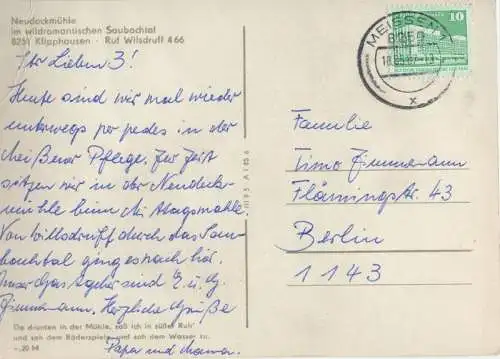 Neudeckmühle
im wildromantischen Saubachtal
8251 Klipphausen · Ruf Wilsdruff 466
Ihr Lieben 3!
Heute sind wir mal wieder
unterwegs per pedes in der
Meißener Pflege. Zur Zeit
sitzen wir in der Neudeck-
mühle beim Mittagsmahle.
Von Wilsdruff durch das Sau-
bachtal ging es nach hier.
Unsere Gastgeber sind E. u. G.
Zimmermann. Herzliche Grüße
Papa und Mama.
Da drunten in der Mühle, saß ich in süßer Ruh'
und sah dem Räderspiele und sah dem Wasser zu.
-.20 M
III 9 5 A 1
MEISSEN
10
x
Familie
Timo Zimmermann
Flämingstr. 43
Berlin
1143